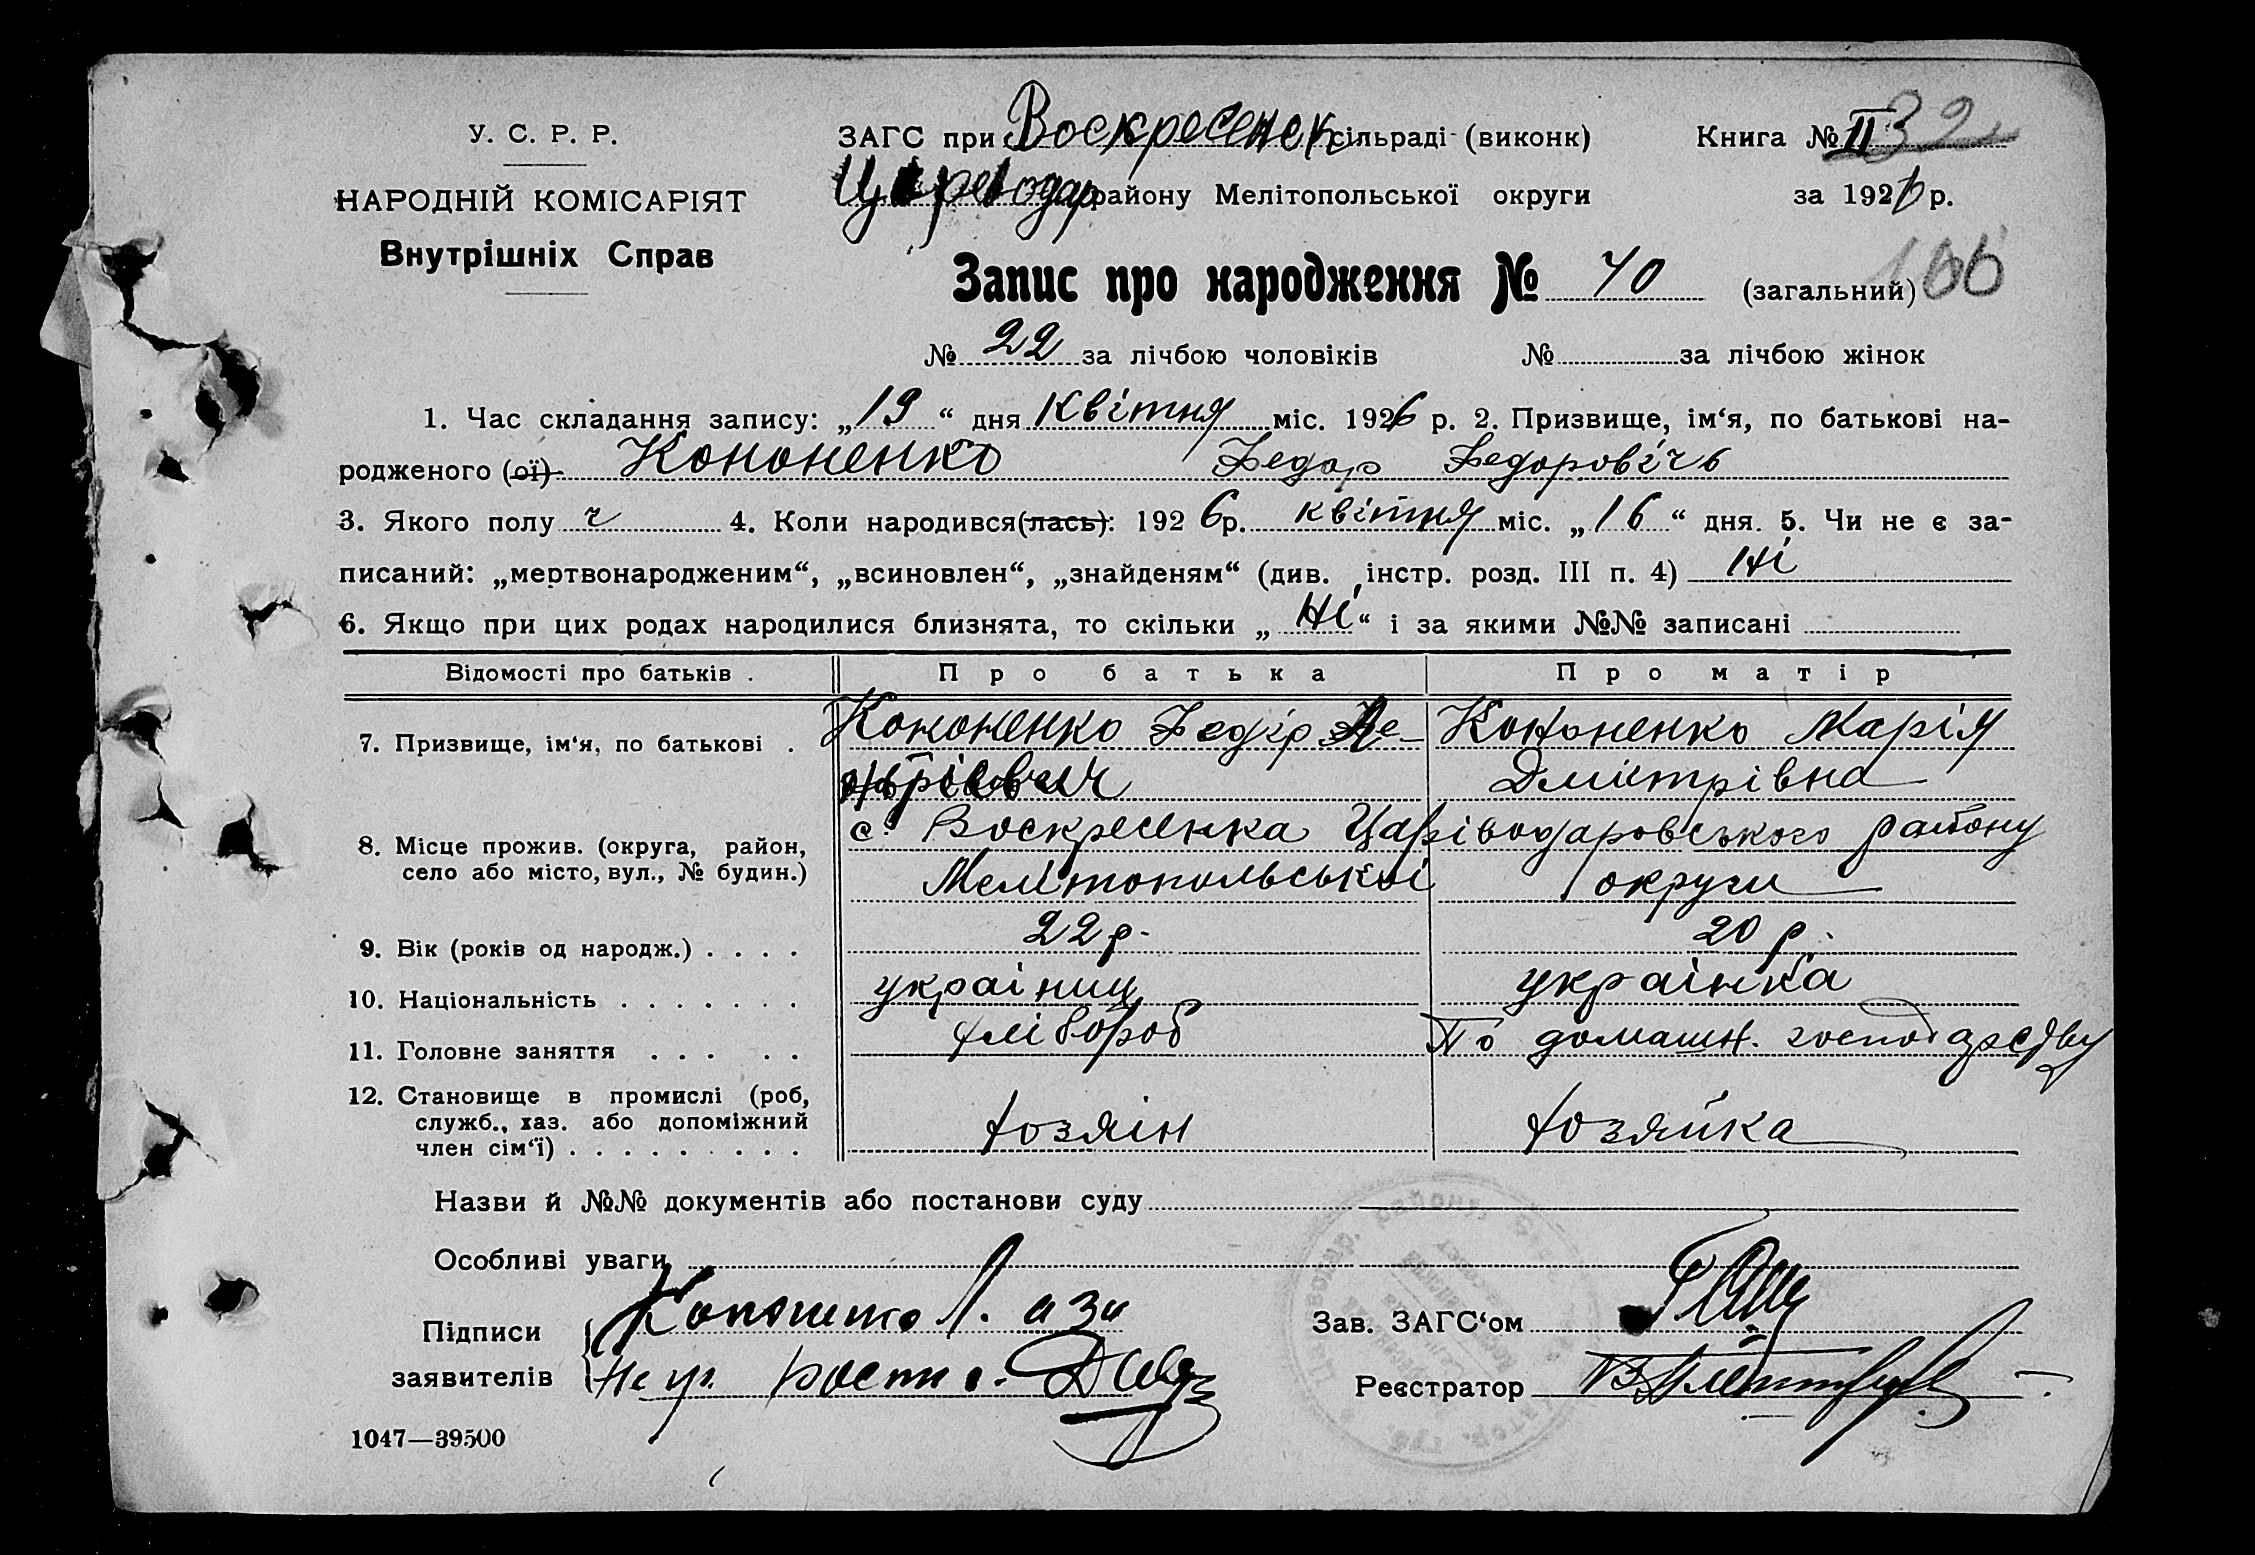 У. С. Р. Р.
НАРОДНІЙ КОМІСАРІЯТ
Внутрішніх Справ
ЗАГС при Воскресенск сільраді (виконк)
Цареводар району Мелітопольської округи
Книга № II 32
за 1926 р.
Запис про народження № 40 (загальний) 166
№ 22 за лічбою чоловіків № за лічбою жінок
1. Час складання запису: „19“ дня Квітня міс. 1926 р. 2. Призвище, ім‘я, по батькові на-
родженого (ої) Кононенко Федор Федоровічь
3. Якого полу ч 4. Коли народився(лась): 1926 р. квітня міс. „16“ дня. 5. Чи не є за-
писаний: „мертвонародженим“, „всиновлен“, „знайденям“ (див. інстр. розд. III п. 4) Ні
6. Якщо при цих родах народилися близнята, то скільки „Ні“ і за якими №№ записані
Відомості про батьків . Про батька Про матір
7. Призвище, ім‘я, по батькові . Кононенко Федір Кононенко Марія
Дмітрівна
8. Місце прожив. (округа, район, село або місто, вул., № будин.) с. Воскресенка Царіводаровського району
Мелітопольської округи
9. Вік (років од народж.) . . . . 22 р. 20 р.
10. Національність . . . . . . . україниц українка
11. Головне заняття . . . . . хлібороб По домашн. господарству
12. Становище в промислі (роб,
служб., хаз. або допоміжний
член сім‘ї) . . . . . . . . . хозяін хозяйка
Назви й №№ документів або постанови суду
Особливі уваги
Підписи
заявителів
Кононенко а за
Зав. ЗАГС‘ом
Реєстратор
1047—39500